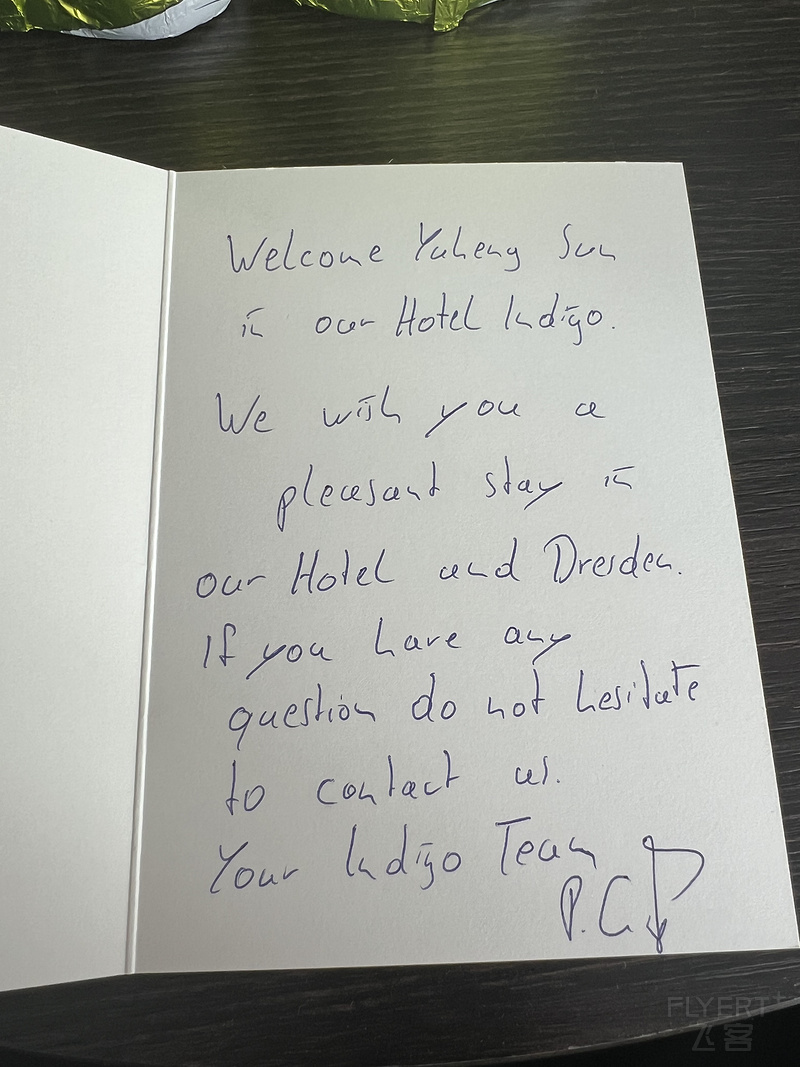 Welcome Yuheng Sun
in our Hotel Indigo.
We wish you a
pleasant stay in
our Hotel and Dresden.
If you have any
question do not hesitate
to contact us.
Your Indigo Team
P.C
FLYERT
飞客